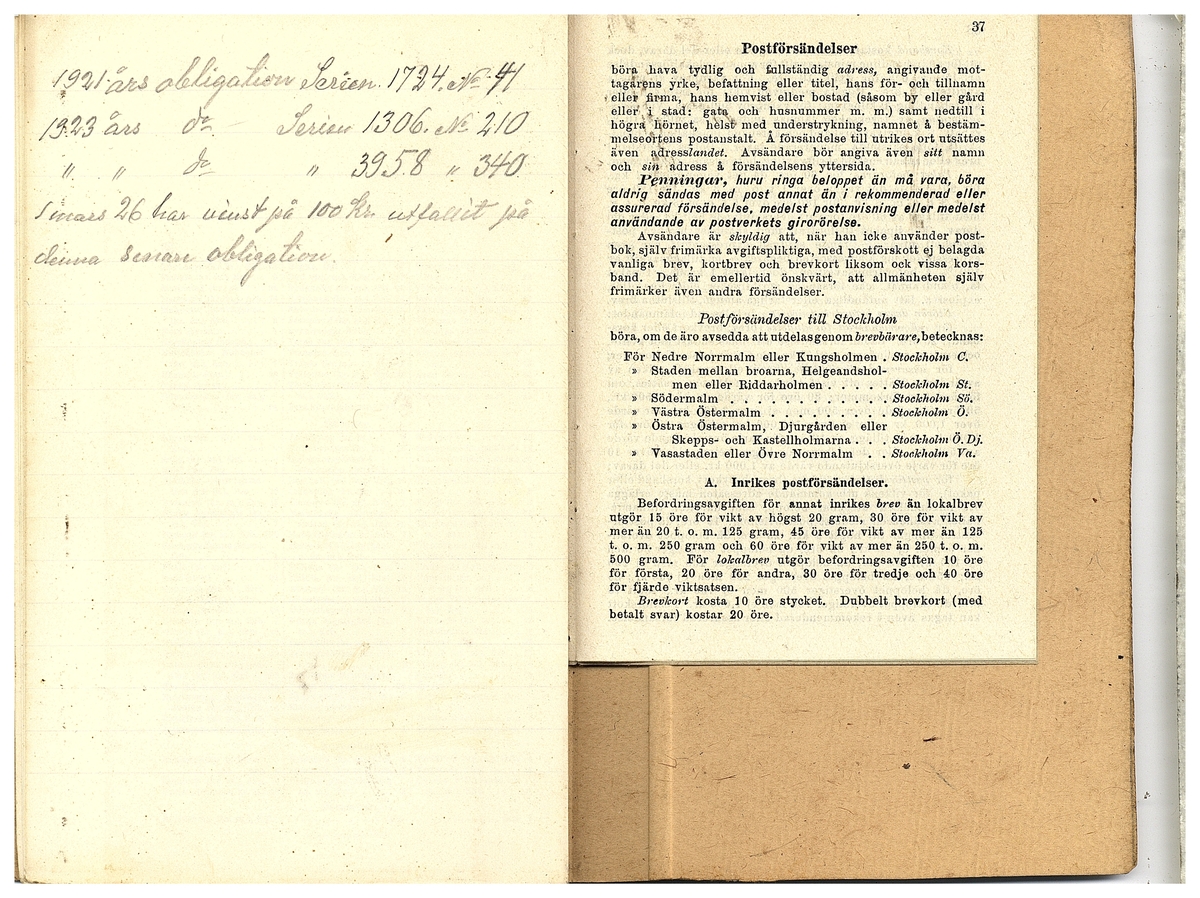 1921 års obligation Serien. 1724. No 41
1923 års do Serien 1306. No 210
" " do " 3958 " 340
1 mars 26 har vinst på 100 Kr. utfallit på
denna senare obligation.
37
Postförsändelser
böra hava tydlig och fullständig adress, angivande mot-
tagarens yrke, befattning eller titel, hans för- och tillnamn
eller firma, hans hemvist eller bostad (såsom by eller gård
eller i stad: gata och husnummer m. m.) samt nedtill i
högra hörnet, helst med understrykning, namnet å bestäm-
melseortens postanstalt. Å försändelse till utrikes ort utsättes
även adresslandet. Avsändare bör angiva även sitt namn
och sin adress å försändelsens yttersida.
Penningar, huru ringa beloppet än må vara, böra
aldrig sändas med post annat än i rekommenderad eller
assurerad försändelse, medelst postanvisning eller medelst
användande av postverkets girorörelse.
Avsändare är skyldig att, när han icke använder post-
bok, själv frimärka avgiftspliktiga, med postförskott ej belagda
vanliga brev, kortbrev och brevkort liksom ock vissa kors-
band. Det är emellertid önskvärt, att allmänheten själv
frimärker även andra försändelser.
Postförsändelser till Stockholm
böra, om de äro avsedda att utdelas genom brevbärare, betecknas:
För Nedre Norrmalm eller Kungsholmen . Stockholm C.
» Staden mellan broarna, Helgeandshol-
men eller Riddarholmen . . . . . Stockholm St.
» Södermalm . . . . . . . . . . . . Stockholm Sö.
» Västra Östermalm . . . . . . . . . Stockholm Ö.
» Östra Östermalm, Djurgården eller
Skepps- och Kastellholmarna . . . Stockholm Ö. Dj.
» Vasastaden eller Övre Norrmalm . . Stockholm Va.
A. Inrikes postförsändelser.
Befordringsavgiften för annat inrikes brev än lokalbrev
utgör 15 öre för vikt av högst 20 gram, 30 öre för vikt av
mer än 20 t. o. m. 125 gram, 45 öre för vikt av mer än 125
t. o. m. 250 gram och 60 öre för vikt av mer än 250 t. o. m.
500 gram. För lokalbrev utgör befordringsavgiften 10 öre
för första, 20 öre för andra, 30 öre för tredje och 40 öre
för fjärde viktsatsen.
Brevkort kosta 10 öre stycket. Dubbelt brevkort (med
betalt svar) kostar 20 öre.